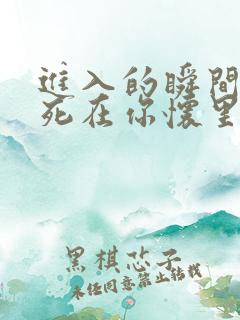 進入的瞬間
死在你懷里
黑棋芯子
未经同意禁止转载